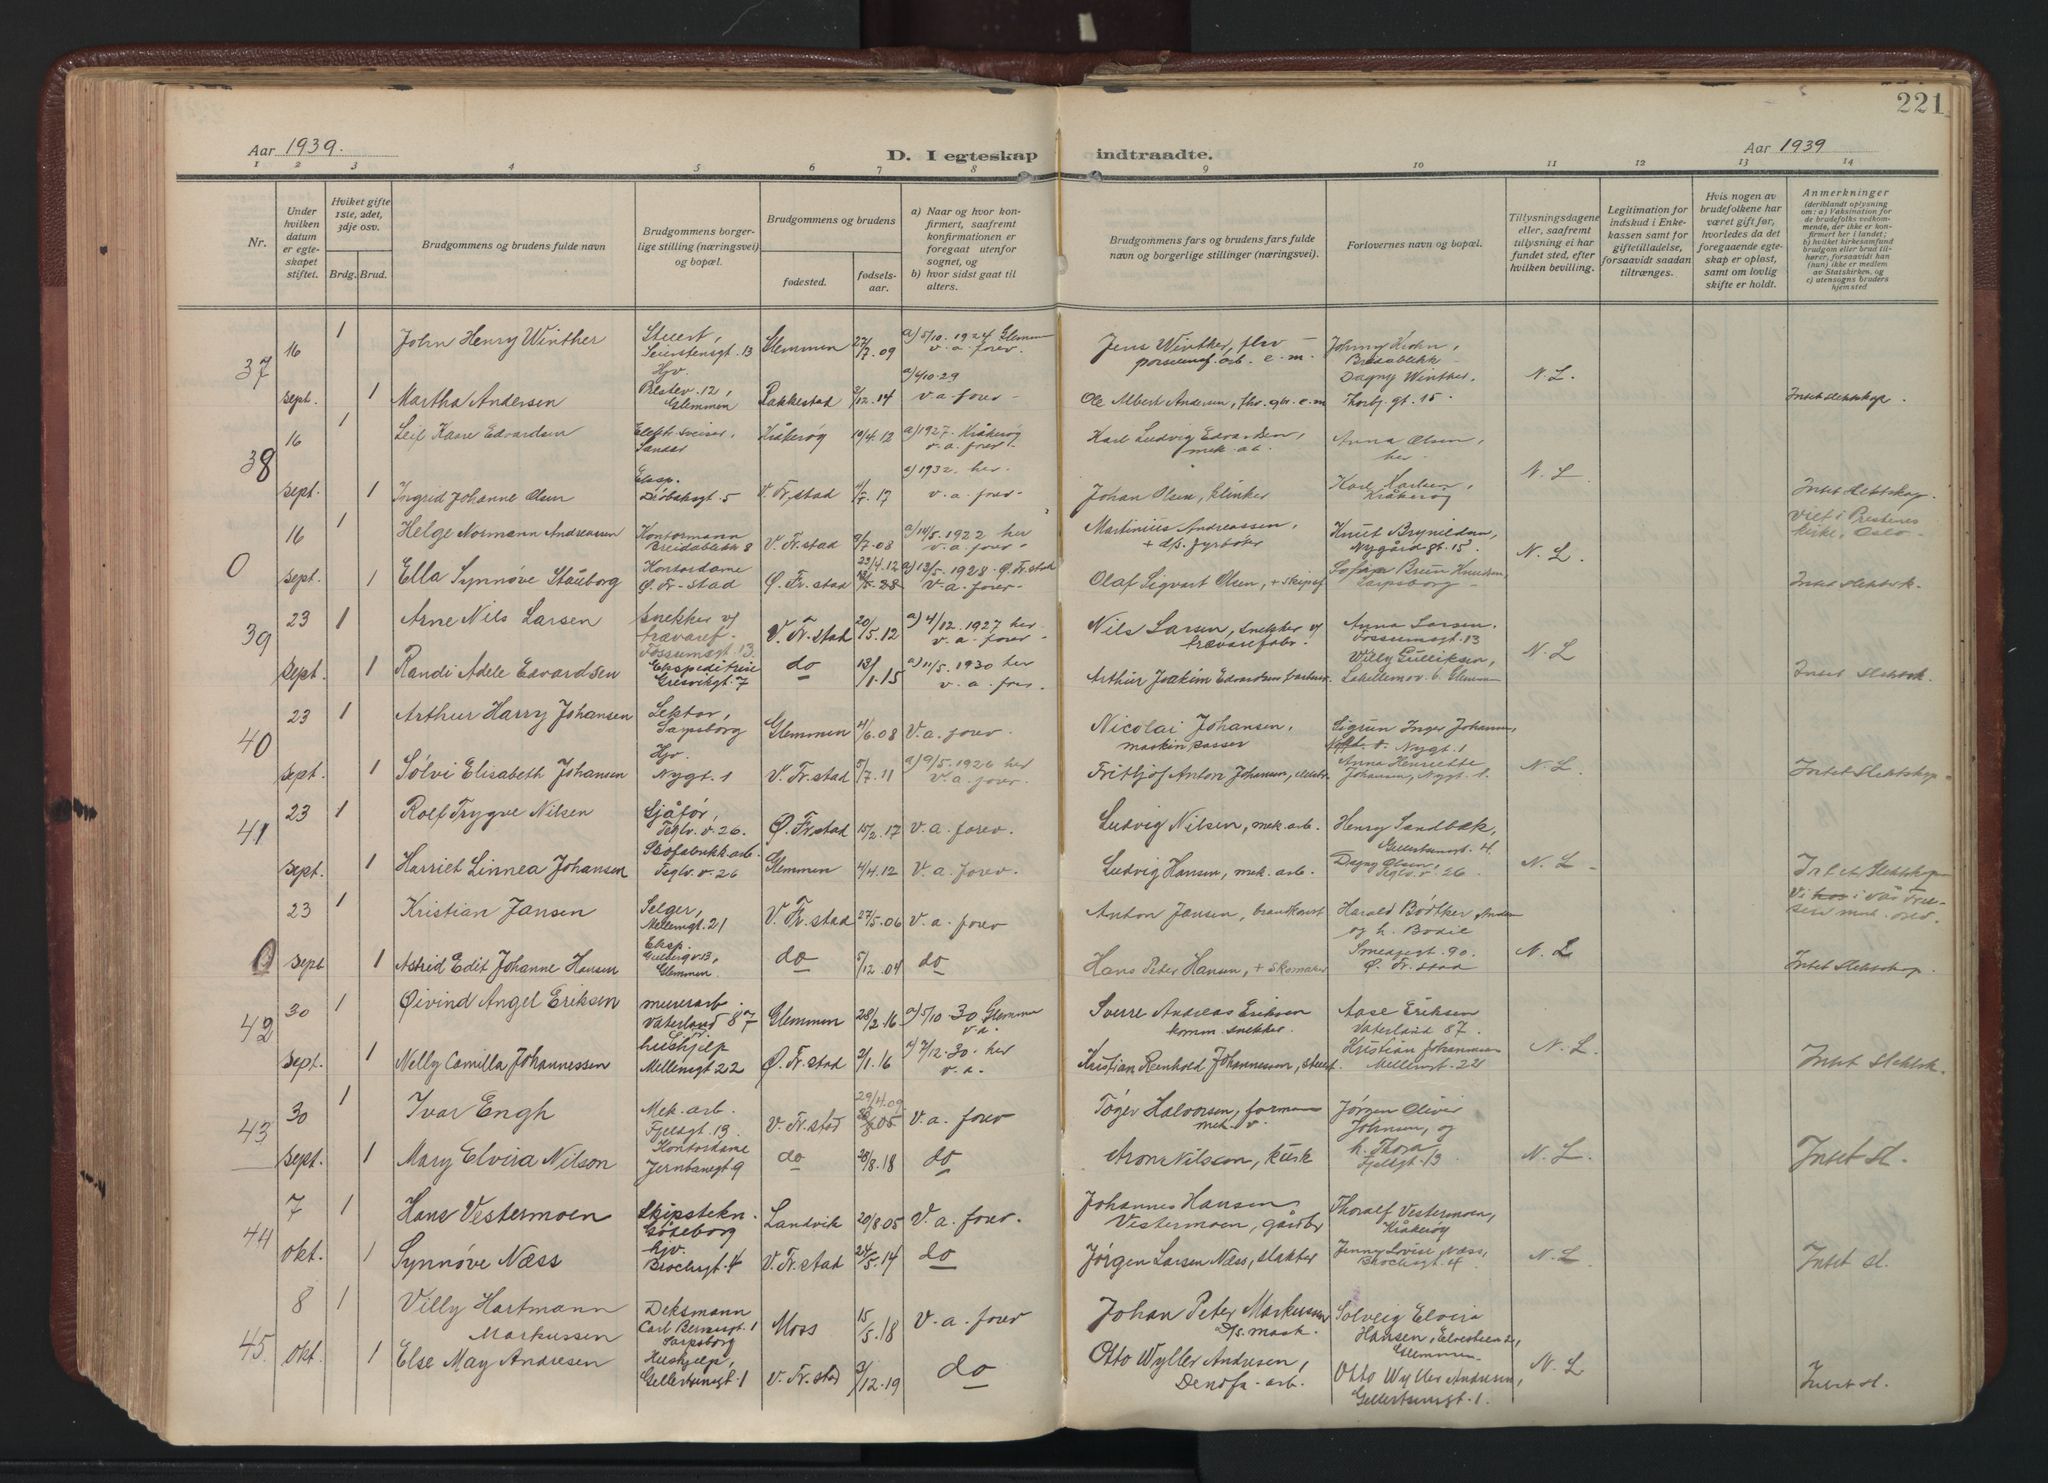 221
Aar 1939.
D. I egteskap indtraadte.
Aar 1939
1 2 3 4 5 6 7 8 9 10 11 12 13 14
Nr.
Under hvilken datum er egteskapet stiftet.
Hviket gifte 1ste, 2det, 3dje osv.
Brdg. Brud.
Brudgommens og brudens fulde navn
Brudgommens borgerlige stilling (næringsvei) og bopæl.
Brudgommens og brudens
fødested. fødselsaar.
a) Naar og hvor konfirmert, saafremt konfirmationen er foregaat utenfor sognet, og
b) hvor sidst gaat til alters.
Brudgommens fars og brudens fars fulde navn og borgerlige stillinger (næringsvei).
Forlovernes navn og bopæl.
Tillysningsdagene eller, saafremt tillysning ei har fundet sted, efter hvilken bevilling.
Legitimation for indskud i Enkekassen samt for giftetilladelse, forsaavidt saadan tiltrænges.
Hvis nogen av brudefolkene har været gift før, hvorledes da det foregaaende egteskap er opløst, samt om lovlig skifte er holdt.
Anmerkninger
(deriblandt oplysning om: a) Vaksination for de brudefolks vedkommende, der ikke er konfirmert her i landet; b) hvilket kirkesamfund brudgom eller brud tilhører, forsaavidt han (hun) ikke er medlem av Statskirken, og c) utensogns bruders hjemsted
37 16 1 John Henry Winther Stuert, Seierstensgt. 13 Glemmen 27/7.09 a) 5/10.1924 Glemmen v. a. forev. Jens Winther, porselensf. arb. e. m. Johnny Krohn, Bredablikk
sept. 1 Martha Andersen Hjv. Prestev. 12, Glemmen Rakkestad 3/12.14 a) 6/10-29 v. a. forev. Ole Albert Andersen, e. m. Dagny Winther, Thorbj. gt. 15. N. L. Intet slektskap
38 16 1 Leif Kaare Edvardsen Elektr. sveiser, Sandar Kråkerøy 10/4.12 a) 1927. Kråkerøy v. a. forev. Karl Ludvig Edvardsen, mek. arb. Anna Olsen, her
sept. 1 Ingrid Johanne Olsen Eksp. Drøbaksgt. 5 V. Fr.stad 1/7.17 a) 1932. her. v. a. forev. Johan Olsen, klinker Karl Karlsen, Kråkerøy N. L Intet slektskap.
0 16 1 Helge Normann Andreassen Kontormann Breidablikk 8 V. Fr.stad 8/7.08 a) 14/5.1922 her v. a. forev. Martinius Andreassen, + d/s. fyrbøter Knut Brynildsen, Nygårdsgt. 15 viet i Presteres kirke, Oslo
sept. 1 Ella Synnøve Stauborg Kontordame Ø. Fr-stad Ø. Fr.stad 23/4.12 a) 13/5.1928. Ø. Fr.stad v. a. forev. Olaf Sigvart Olsen, + Sofian Brun Knudsen, Sarpsborg N. L. Intet slektsk.
39 23 1 Arne Nils Larsen Snekker v/ trævaref. Fossumsgt. 13. V. Fr.stad 20/5.12 a) 4/12.1927 her. v. a. forev. Nils Larsen, snekker v/ trævarefabr. Anna Larsen. Fossumsgt. 13
sept. 1 Randi Adele Edvardsen Ekspeditrise Gresvikgt. 7 do 13/1.15 a) 11/5.1930 her v. a. forev. Arthur Joakim Edvardsen, Willy Gulliksen, Lakellemov. 6. Glemmen N. L Intet slektsk.
40 23 1 Arthur Harry Johansen Lektor, Sarpsborg Glemmen 4/6.08 V. a. forev. Nicolai Johansen, maskinpasser Sigrun Inger Johansen, Nygt. 1
sept. 1 Sølvi Elisabeth Johansen Hjv. Nygt. 1 V. Fr.stad 5/7.11 a) 9/5.1926 her v. a. forev. Fritjof Anton Johansen, Anna Henriette Johansen, Nygt. 1. N. L. Intet slektskap
41 23 1 Rolf Trygve Nilsen Sjåfør, Teglv. v. 26. Ø. Fr.stad 15/2.17 V. a. forev. Ludvig Nilsen, mek. arb. Henry Sandbæk, Gellertsensgt. 4.
sept. 1 Harriet Linnea Johansen Skofabrikkarb. Teglv. v. 26 Glemmen 4/4.12 V. a. forev. Ludvig Hansen, mek. arb. Dagny Olsen, Teglv. v. 26 N. L. Intet slektskap
0 23 1 Kristian Jansen Selger, Mellemgt. 21 V. Fr.stad 27/5.06 V. a. forev Anton Jansen, Harald Bødtker og h. Bodil Vi i Vår
sept 1 Astrid Edit Johanne Hansen Eksp. Gulbergv. 13, Glemmen. do 5/12.04 do Hans Peter Hansen, + skomaker Smedjegt. 90. Ø. Fr.stad N. L Intet slektskap.
42 30 1 Øivind Angel Eriksen murerarb. Vaterland 87 Glemmen 28/2.16 a) 5/10.30 Glemmen v. a. Sverre Andreas Eriksen komm. snekker. Aase Eriksen Vaterland 87.
sept. 1 Nelly Camilla Johannessen hushjelp Mellemgt 22 Ø. Fr.stad 2/1.16 7/12.30. her v. a. Kristian Reinhold Johannessen, stuert. Kristian Johannessen Mellemgt. 22 N. L. Intet slektsk.
43 30 1 Ivar Engh Mek. arb. Fjeldgt. 13 V. Fr.stad 29/4.09 V. a. forev Tøger Halvorsen, formann mek. v. Jørgen Oliver Johnsen, og
sept. 1 Mary Elvira Nilson Kontordame Jernbanegt 9 do 28/8.18 do Arone Nilsson, kusk h. Thora Fjeldgt. 13 N. L. Intet sl.
44 7 1 Hans Vestermoen Skipstekn. Gøteborg Landvik 20/8.05 V. a. forev. Johannes Hansen Vestermoen, gårdbr Thoralf Vestermoen, Kråkerøy
okt. 1 Synnøve Næss hjv. Brochsgt. 4 V. Fr.stad 24/5.14 do Jørgen Larsen Næss, slakter Jenny Lovise Næss, Brochsgt. 4 N. L Intet sl.
45. 8 1 Villy Hartmann Markussen Dekksmann Carl Bernesgt. 1 Sarpsborg Moss 15/5.18 V. a. forev Johan Peter Markussen D/s. mask. Solveig Elvira Hansen, Glemmen
okt. 1 Else May Andresen Hushjelp, Gellertsensgt. 1 V. Fr.stad 3/12.19 do Otto Wyller Andresen, Denofa-arb. Otto Wyller Andresen, Gellertsensgt. 1. N. L Intet sl.